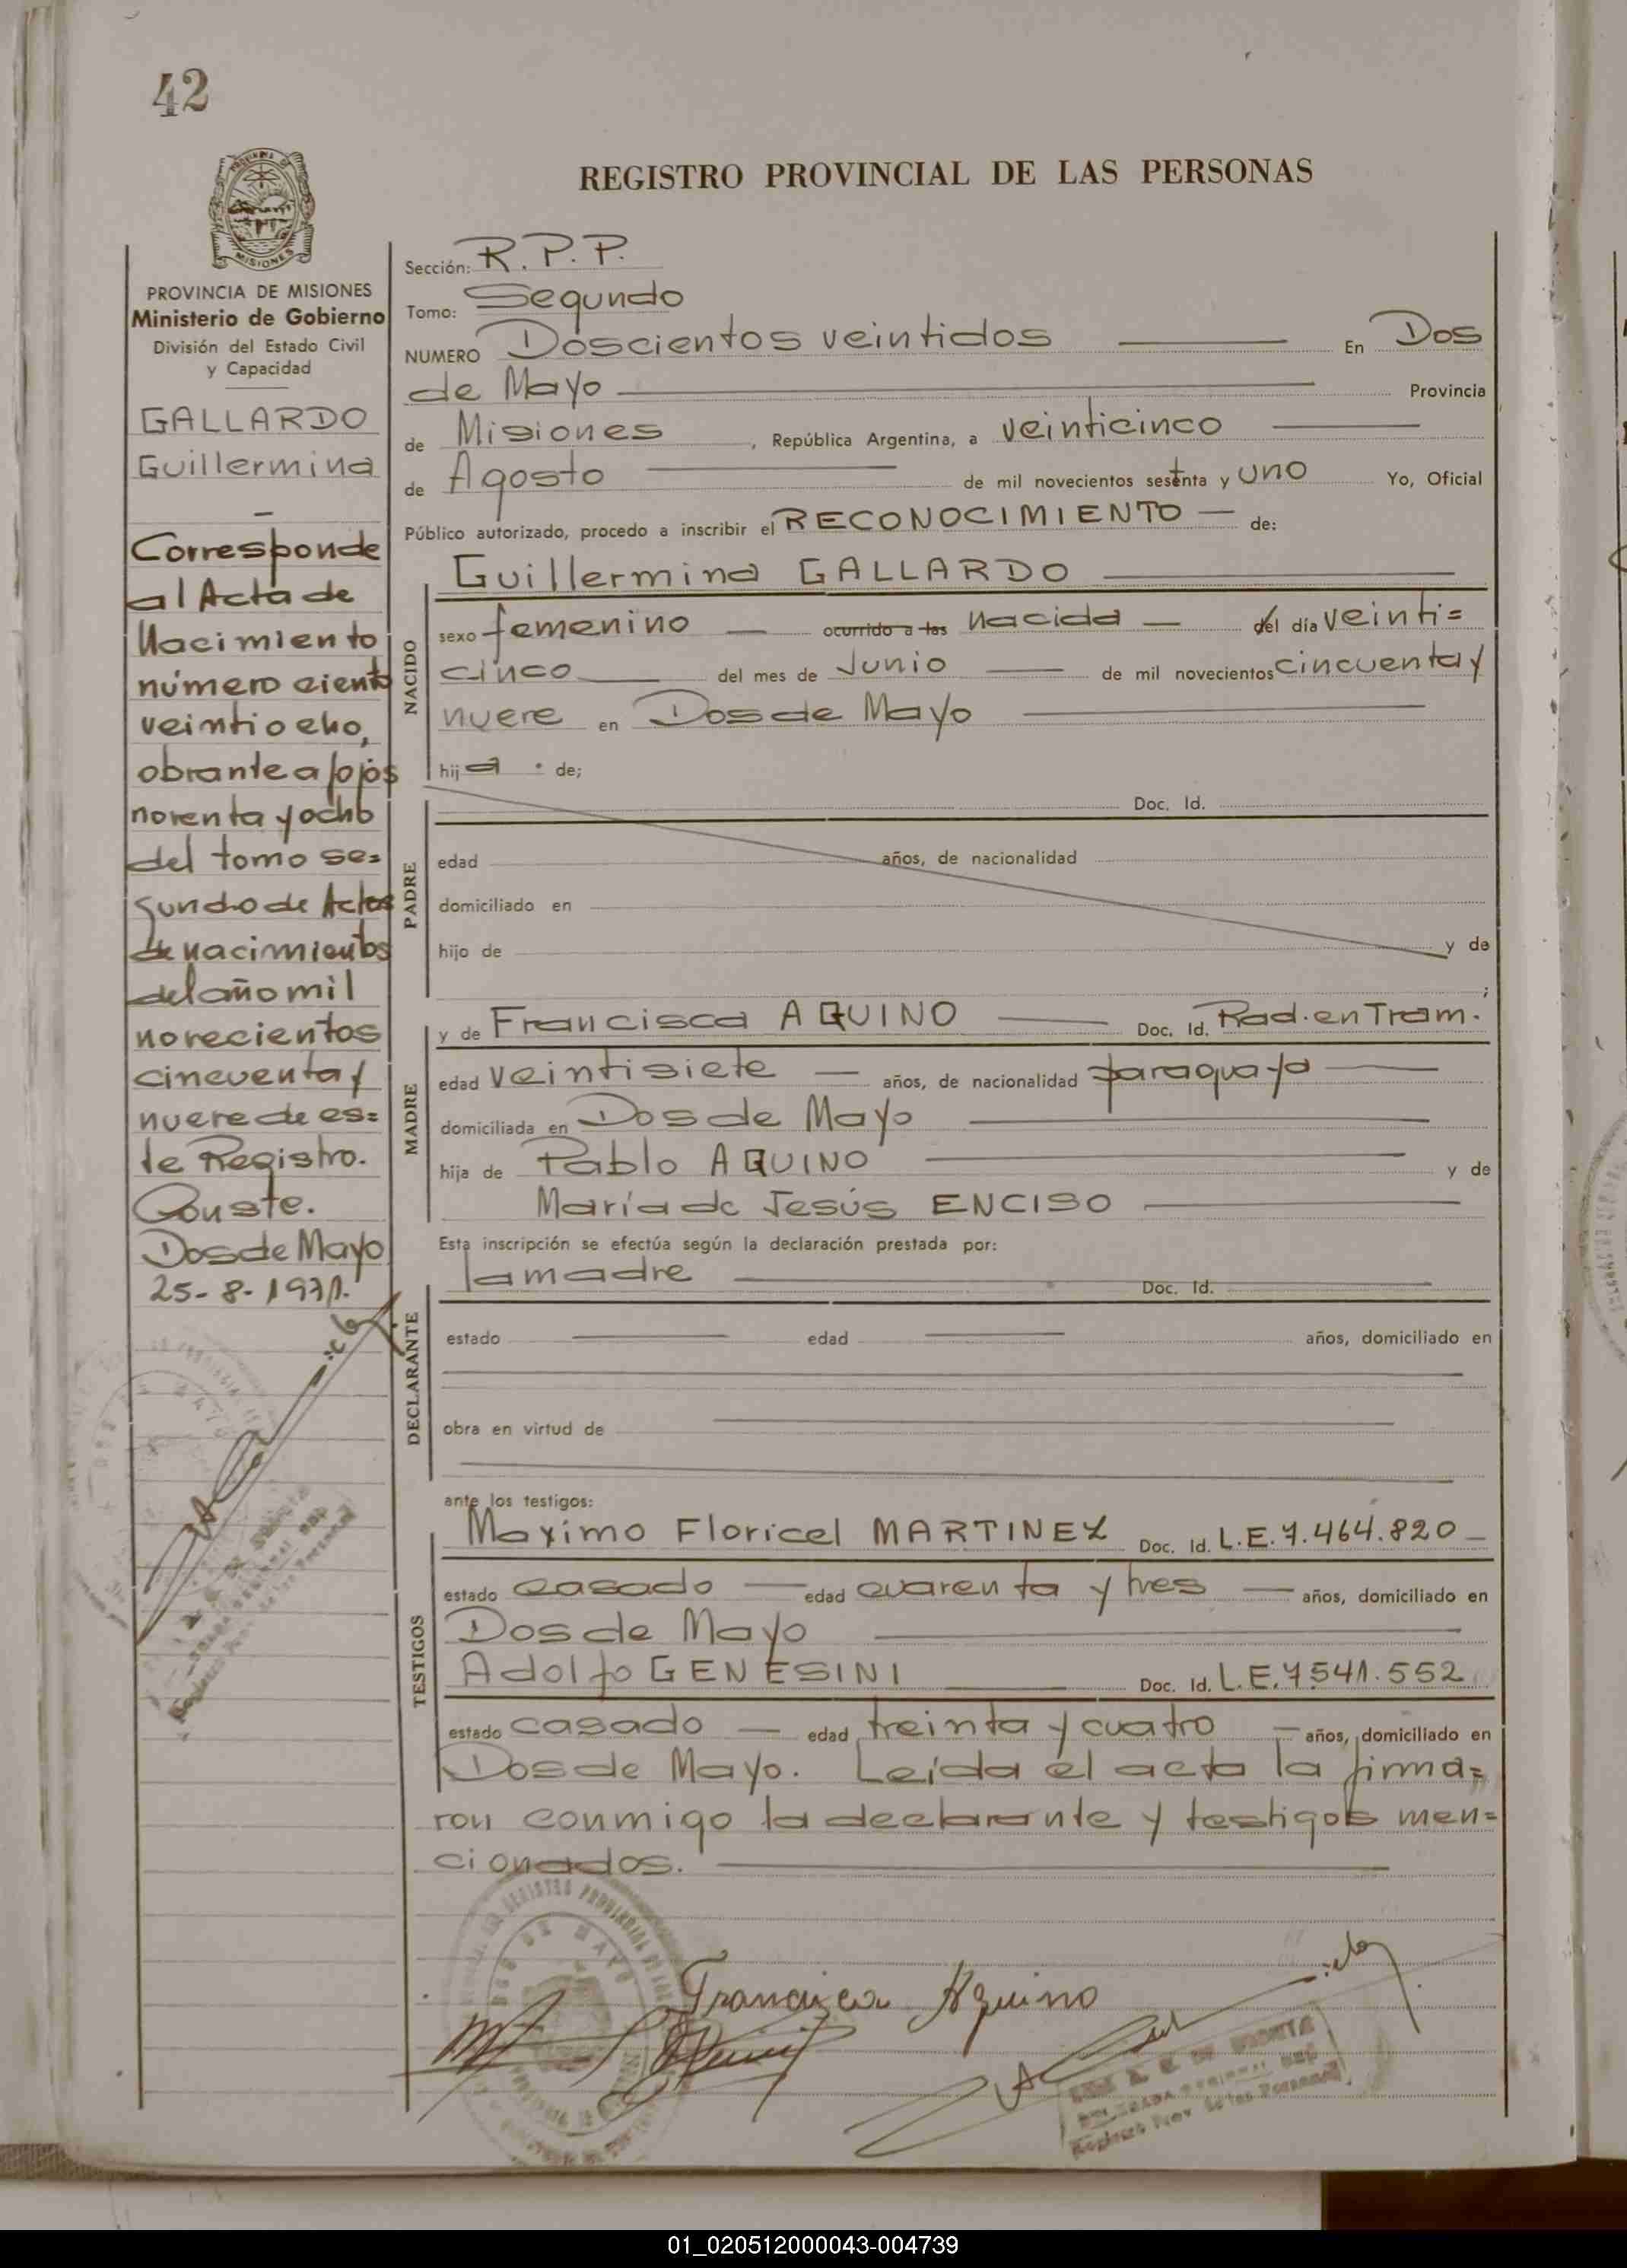 42
REGISTRO PROVINCIAL DE LAS PERSONAS
PROVINCIA DE MISIONES
Ministerio de Gobierno
División del Estado Civil
y Capacidad
GALLARDO
Guillermina
-
Corresponde
al Acta de
Nacimiento
número ciento
veintiocho,
obrante a fojas
noventa y ocho
del tomo se=
gundo de Actas
de nacimientos
del año mil
novecientos
cincuenta y
nueve de es=
te Registro.
Conste.
Dos de Mayo
25-8-1971.
Sección: R.P.P.
Tomo: Segundo
NUMERO Doscientos veintidos En Dos
de Mayo Provincia
de Misiones, República Argentina, a veinticinco
de Agosto de mil novecientos setenta y uno Yo, Oficial
Público autorizado, procedo a inscribir el RECONOCIMIENTO de:
Guillermina GALLARDO
NACIDO
sexo femenino ocurrido a las nacida del día veinti=
cinco del mes de Junio de mil novecientos cincuenta y
nueve en Dos de Mayo
hija de;
PADRE
Doc. Id.
edad años, de nacionalidad
domiciliado en
hijo de y de
;
MADRE
y de Francisca AQUINO Doc. Id. Rad. en Tram.
edad veintisiete años, de nacionalidad paraguaya
domiciliada en Dos de Mayo
hija de Pablo AQUINO y de
María de Jesús ENCISO
Esta inscripción se efectúa según la declaración prestada por:
DECLARANTE
la madre Doc. Id.
estado edad años, domiciliado en
obra en virtud de
ante los testigos:
TESTIGOS
Maximo Floricel MARTINEZ Doc. Id. L.E. 7.464.820
estado casado edad cuarenta y tres años, domiciliado en
Dos de Mayo
Adolfo GENESINI Doc. Id. L.E. 7.541.552
estado casado edad treinta y cuatro años, domiciliado en
Dos de Mayo. Leída el acta la firma=
ron conmigo la declarante y testigos men=
cionados.
Francisca Aquino
01_020512000043-004739